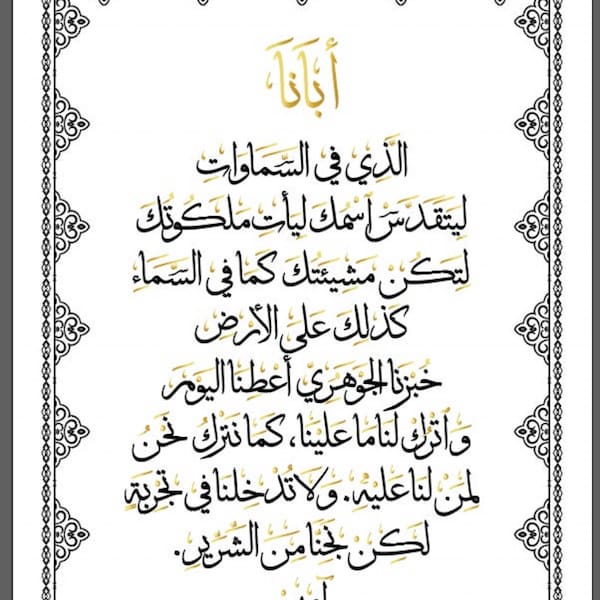 أَبَانَا
الَّذِي فِي السَّمَاوَاتِ
لِيَتَقَدَّسْ ٱسْمُكَ لِيَأْتِ مَلَكُوتُكَ
لِتَكُنْ مَشِيئَتُكَ كَمَا فِي السَّمَاءِ
كَذَلِكَ عَلَى الأَرْضِ
خُبْزَنَا الجَوْهَرِي أَعْطِنَا اليَوْمَ
وَٱتْرُكْ لَنَا مَا عَلَيْنَا، كَمَا نَتْرُكُ نَحْنُ
لِمَنْ لَنَا عَلَيْهِ. وَلَا تُدْخِلْنَا فِي تَجْرِبَةٍ
لَكِنْ نَجِّنَا مِنَ الشِّرِّيرِ.